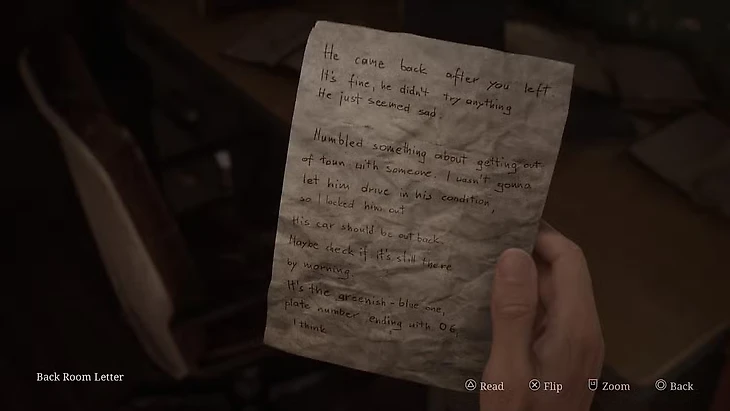 He came back after you left.
It's fine, he didn't try anything
He just seemed sad.
Mumbled something about getting out
of town with someone. I wasn't gonna
let him drive in his condition,
so I locked him out
His car should be out back.
Maybe check if it's still there
by morning.
It's the greenish-blue one,
plate number ending with 06,
I think
Back Room Letter
Read
Flip
Zoom
Back